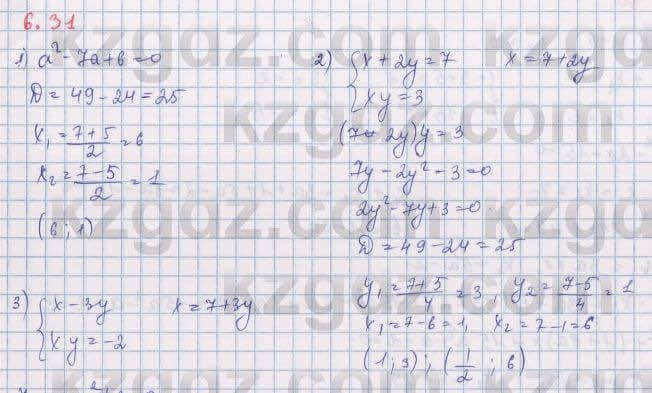 6.31
1) a² - 7a + 6 = 0
D = 49 - 24 = 25
x₁ = (7+5)/2 = 6
x₂ = (7-5)/2 = 1
(6; 1)
2) { x + 2y = 7    x = 7 + 2y
xy = 3
(7 - 2y)y = 3
7y - 2y² - 3 = 0
2y² - 7y + 3 = 0
D = 49 - 24 = 25
y₁ = (7+5)/4 = 3, y₂ = (7-5)/4 = 1
x₁ = 7 - 6 = 1, x₂ = 7 - 1 = 6
(1; 3); (1/2; 6)
3) { x - 3y    x = 7 + 3y
xy = -2
kzgdz.com
kzgdz.com
kzgdz.com
kzgdz.com